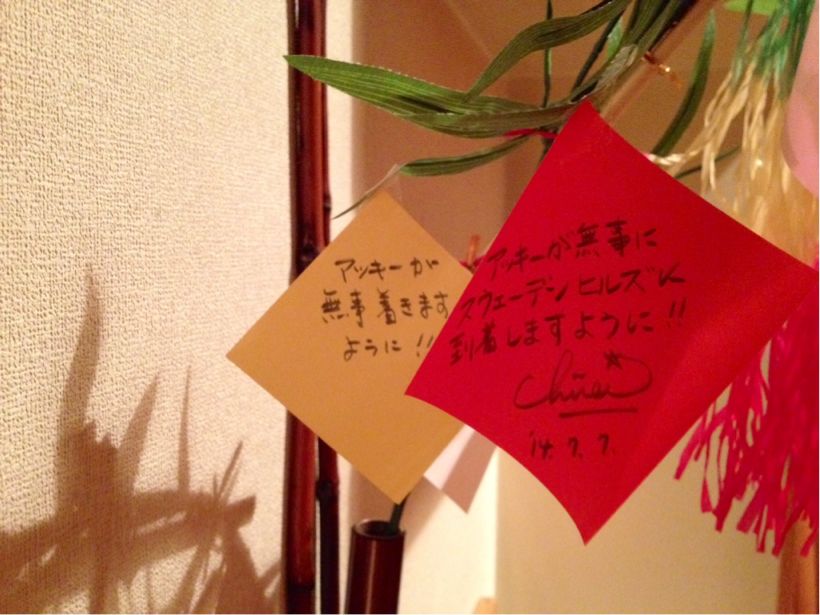 アッキーが
無事着きます
ように!!
アッキーが無事に
スウェーデンヒルズに
到着しますように!!
'14.7.7.